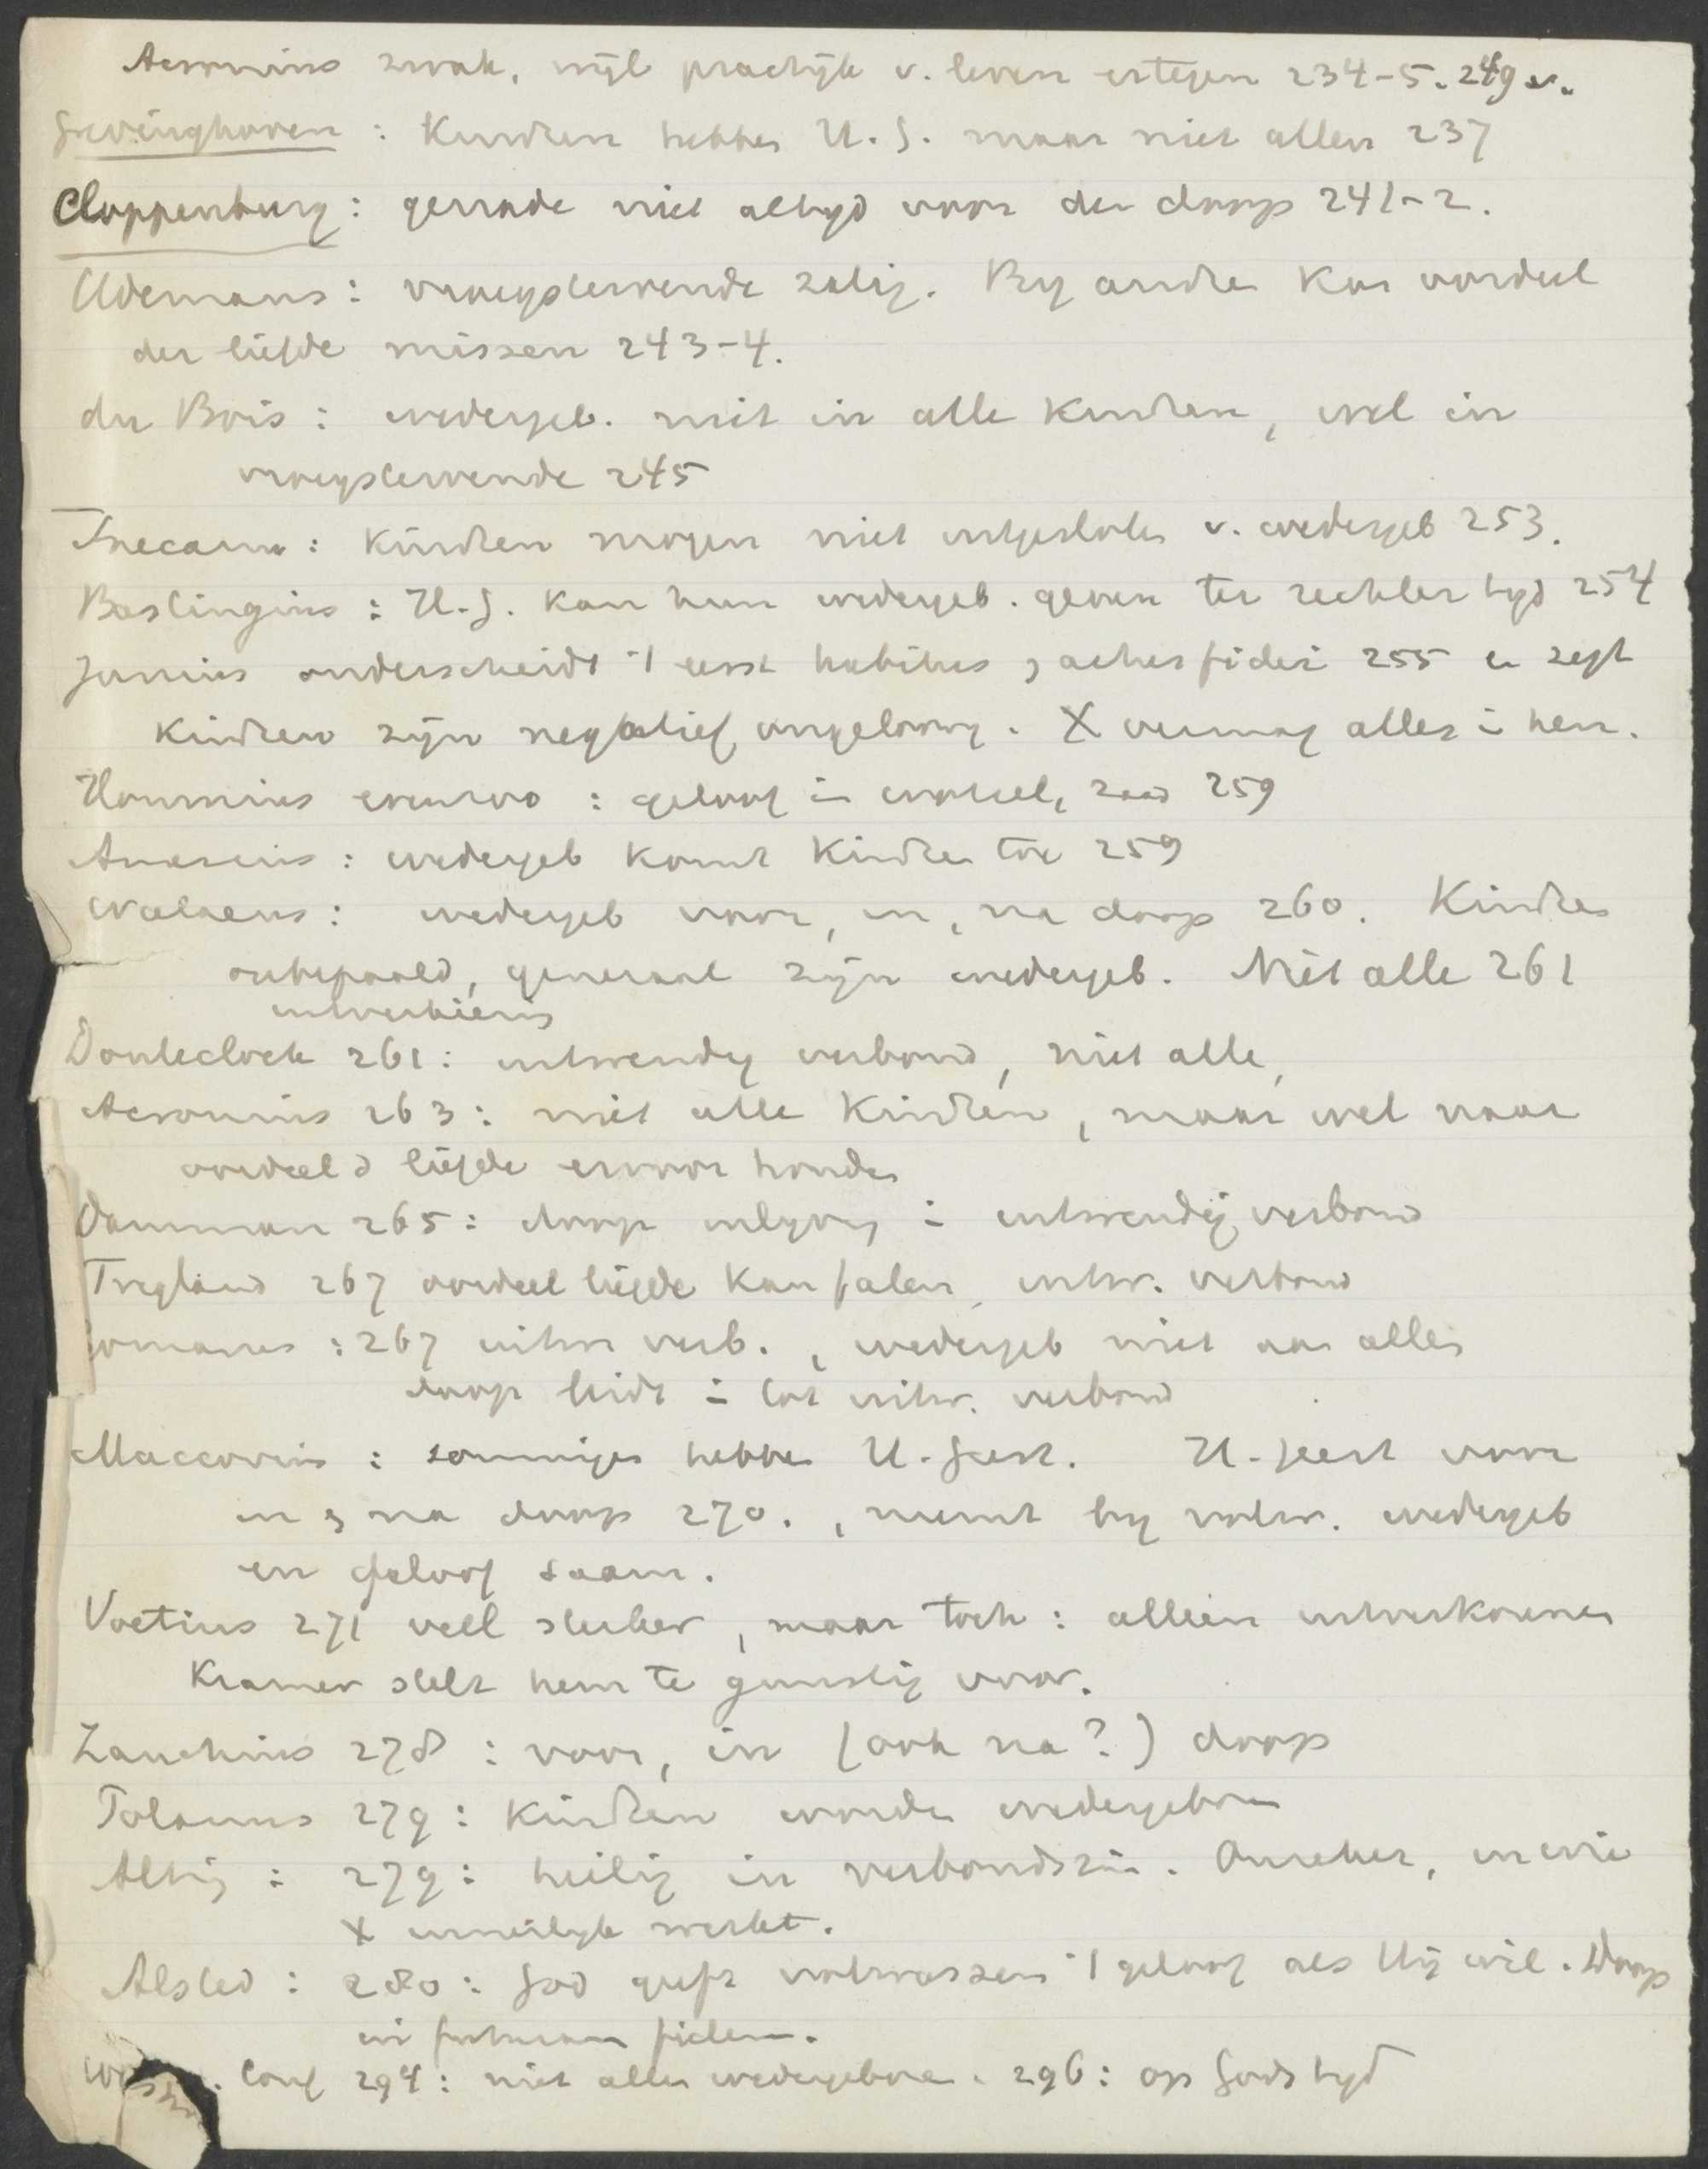 Acronius zwak, wijl practijk v. leven ertegen 234-5. 249 v.
Grevinghoven : Kindren hebben H. G. maar niet allen 237
Cloppenburg : genade niet altyd voor den doop 241-2.
Udemans : vroegstervende zalig. By andre kan oordeel
der liefde missen 243-4.
du Bois : wedergeb. niet in alle kindren, wel in
vroegstervende 245
Snecanus : kindren mogen niet uitgesloten v. wedergeb 253.
Bastingius : H. G. kan hun wedergeb. geven ter rechter tyd 254
Junius onderscheidt 't eerst habitus, actus fidei 255 en zegt
kindren zijn negatief ongeloovig. X vermag alles in hen.
Hommius evenzoo : geloof in wortel, zaad 259
Amesius : wedergeb komt kindren toe 259
Walaeus : wedergeb voor, in, na doop 260. Kindren
onbepaald, generaal zijn wedergeb. Niet alle 261
Donteclock 261 : uitwendig verbond, niet alle,
Acronius 263 : niet alle kindren, maar wel naar
oordeel d liefde ervoor houden
Damman 265 : doop inlyving in uitwendig verbond
Trigland 267 oordeel liefde kan falen, uitw. verbond
Gomarus : 267 uitw verb., wedergeb niet aan allen
doop leidt in tot uitw. verbond
Maccovius : sommigen hebben H. Geest. H. Geest voor
in, na doop 270., neemt by volw. wedergeb
en geloof saam.
Voetius 271 veel sterker, maar toch : alleen uitverkorenen
Kramer stelt hem te gunstig voor.
Zanchius 278 : voor, in (ook na?) doop
Polanus 279 : kindren worden wedergeboren
Alting : 279 : heilig in verbondszin. Anders, in wie
X innerlyk werkt.
Alsted : 280 : God geeft volwassen 't geloof als Hij wil. Doop
in futuram fidem.
Conf 294 : niet allen wedergeboren. 296 : op Gods tyd